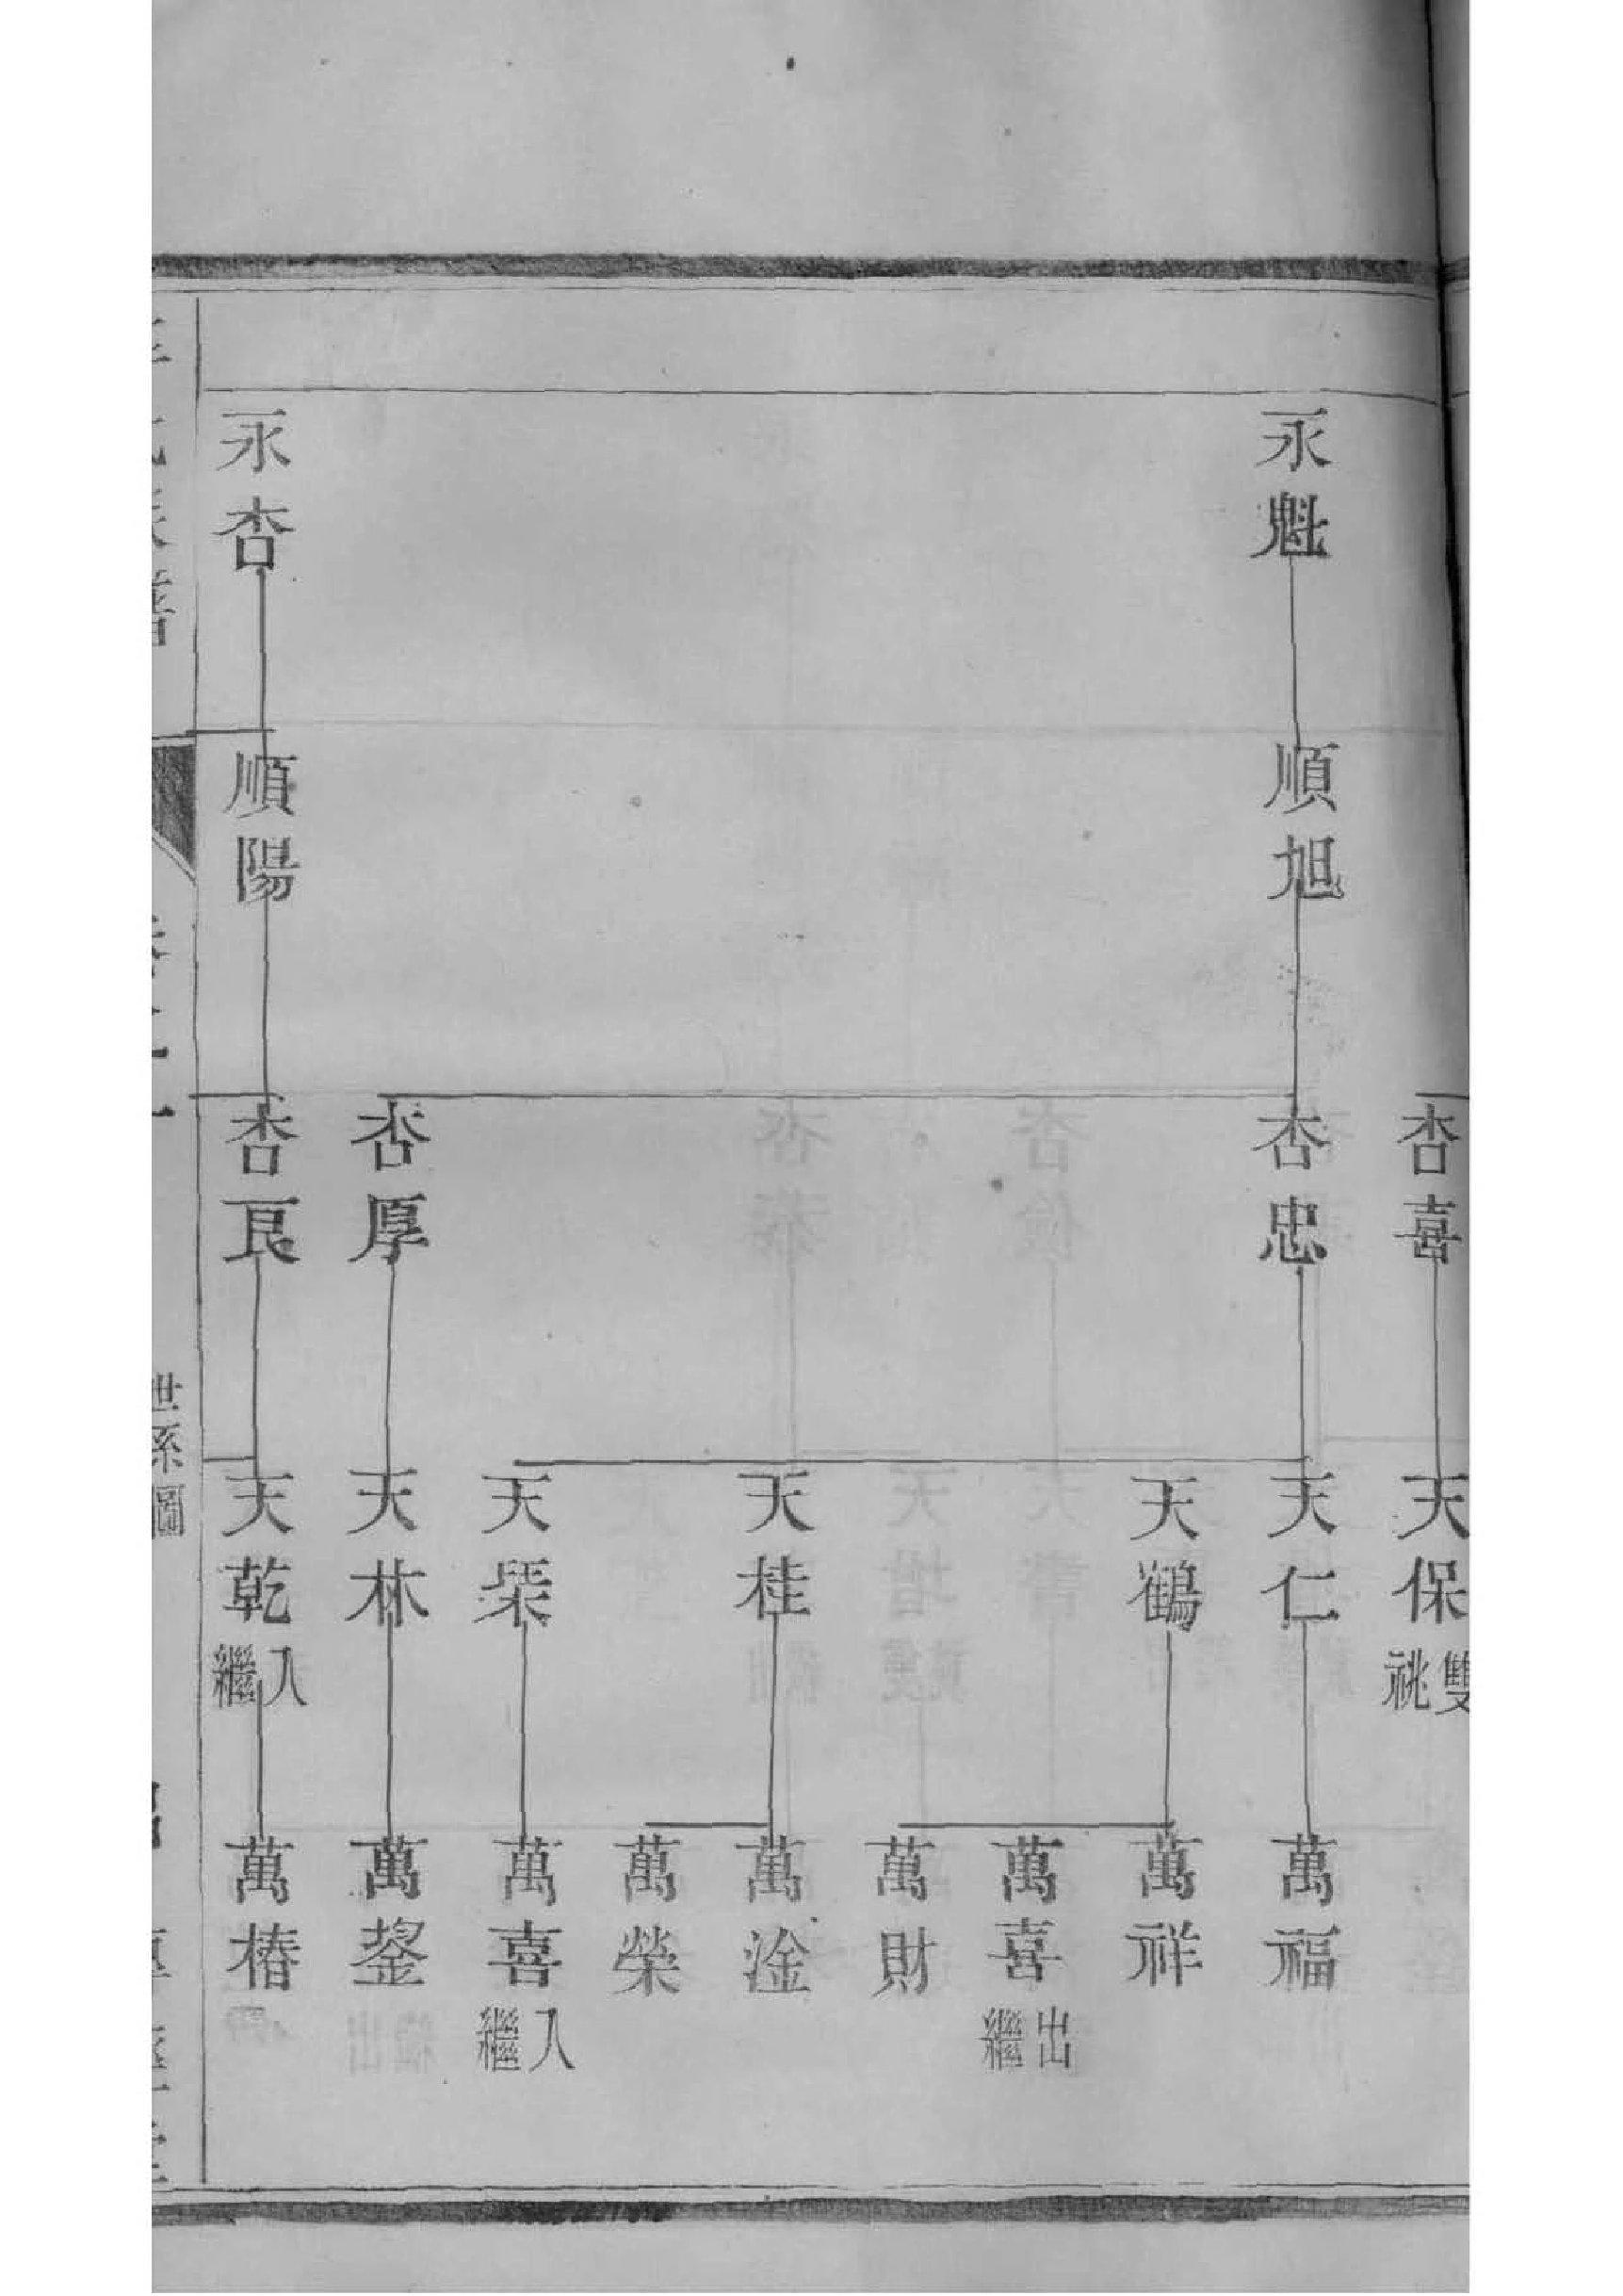 永魁
永杏
順旭
順陽
杏喜
杏忠
杏厚
杏良
天保
雙祧
天仁
天鶴
天桂
天林
天乾
入繼
萬福
萬祥
萬喜
出繼
萬財
萬淦
萬榮
萬喜
入繼
萬鋆
萬椿
世系圖